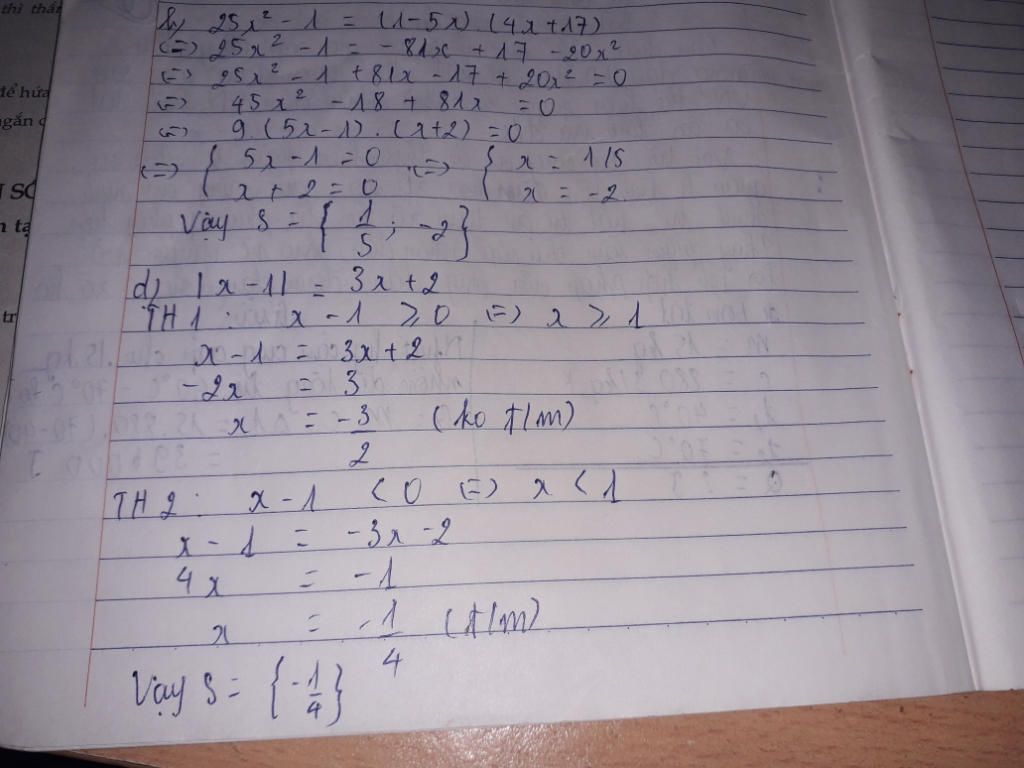 thì thấ
để hứa
ngắn c
N SỐ
n tạ
tr
b) 25x² - 1 = (1-5x).(4x+17)
(=) 25x² - 1 = -81x + 17 - 20x²
(=) 25x² - 1 + 81x - 17 + 20x² = 0
(=) 45x² - 18 + 81x = 0
(=) 9.(5x-1).(x+2) = 0
(=) { 5x - 1 = 0 (=) { x = 1/5
x + 2 = 0 x = -2
Vậy S = { 1/5 ; -2 }
d) |x - 1| = 3x + 2
TH1: x - 1 ≥ 0 (=) x ≥ 1
x - 1 = 3x + 2
-2x = 3
x = -3/2 (ko t/m)
TH2: x - 1 < 0 (=) x < 1
x - 1 = -3x - 2
4x = -1
x = -1/4 (t/m)
Vậy S = { -1/4 }